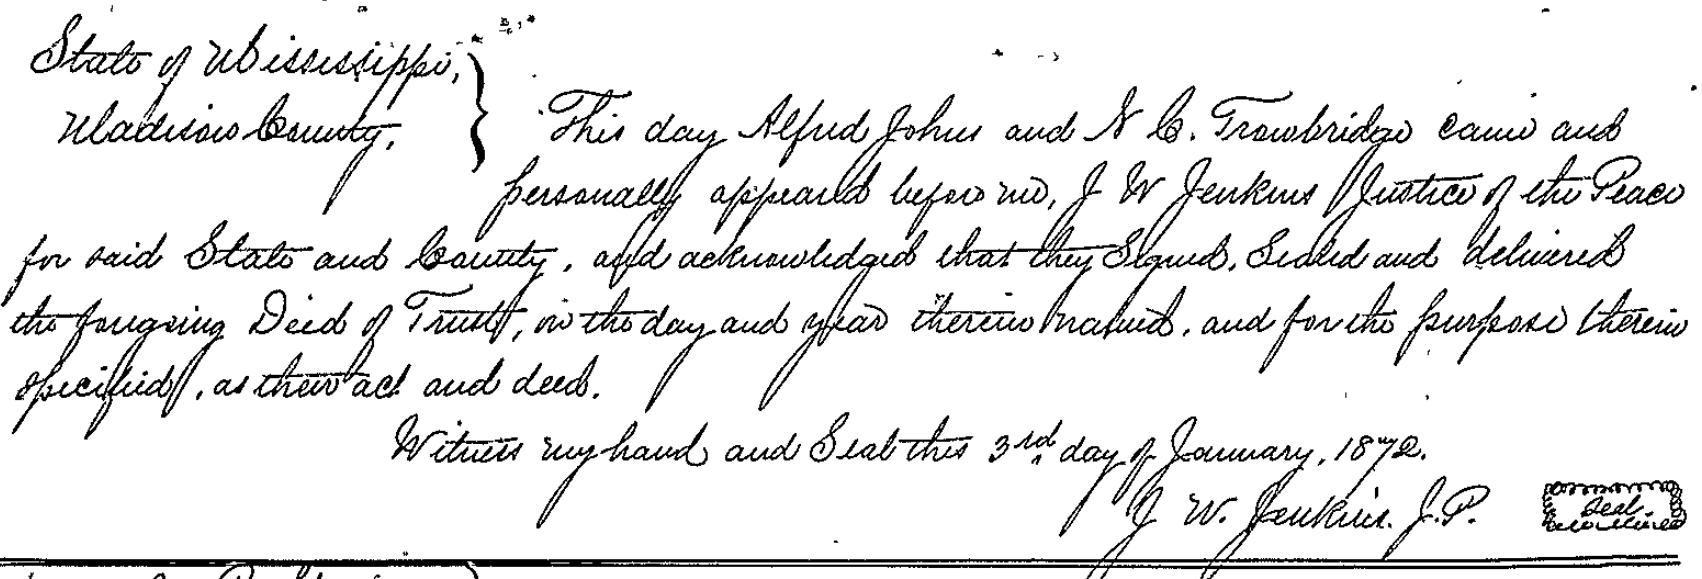 State of Mississippi,
Madison County,
This day Alfred Johns and N C. Trowbridge came and
personally appeared before me, J W Jenkins Justice of the Peace
for said State and County, and acknowledged that they Signed, Sealed and delivered
the foregoing Deed of Trust, on the day and year therein named, and for the purpose therein
specified, as their act and deed.
Witness my hand and Seal this 3rd day of January, 1872.
J W. Jenkins. J.P.
Seal